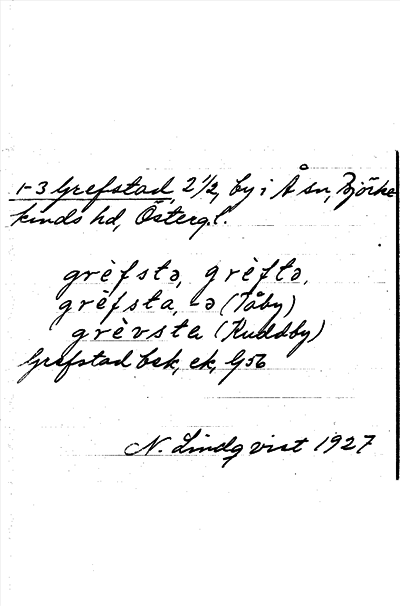 1-3 Grefstad, 2 1/2, by i Å sn, Björke-
kinds hd, Östergl.
grèfstə, grèftə,
grèfsta, -ə (Tåby)
grèvsta (Kuddby)
Grefstad bsk, ek, G56
N. Lindqvist 1927